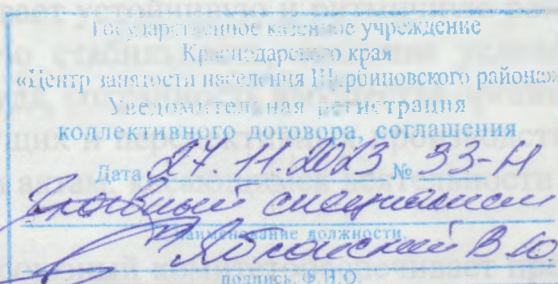 Государственное казенное учреждение
Краснодарского края
«Центр занятости населения Щербиновского района»
Уведомительная регистрация
коллективного договора, соглашения
Дата 27.11.2023 № 33-Н
Главный специалист
наименование должности
В.Ю.
подпись, Ф.И.О.